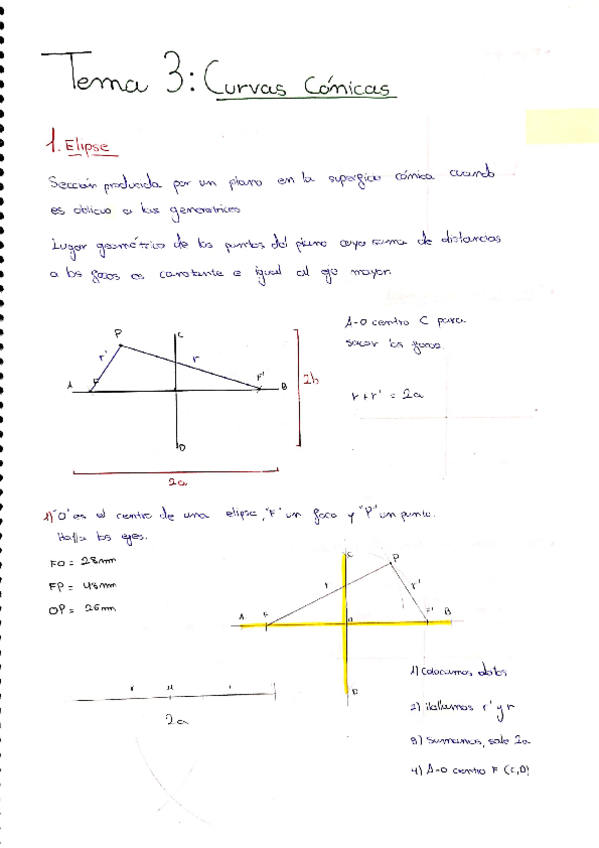 Tema 3: Curvas Cónicas
1. Elipse
Sección producida por un plano en la superficie cónica cuando
es oblicuo a las generatrices
Lugar geométrico de los puntos del plano cuya suma de distancias
a los focos es constante e igual al eje mayor.
A-O centro C para
sacar los focos.
r + r' = 2a
P
C
r'
r
A
F
F'
B
2b
D
2a
1) "O" es el centro de una elipse, "F" un foco y "P" un punto.
Halla los ejes.
FO = 28mm
FP = 48mm
OP = 26mm
C
P
r
r'
A
F
O
F'
B
D
2a
1) Colocamos datos
2) Hallamos r' y r
3) Sumamos, sale 2a
4) A-O centro F (C,D)